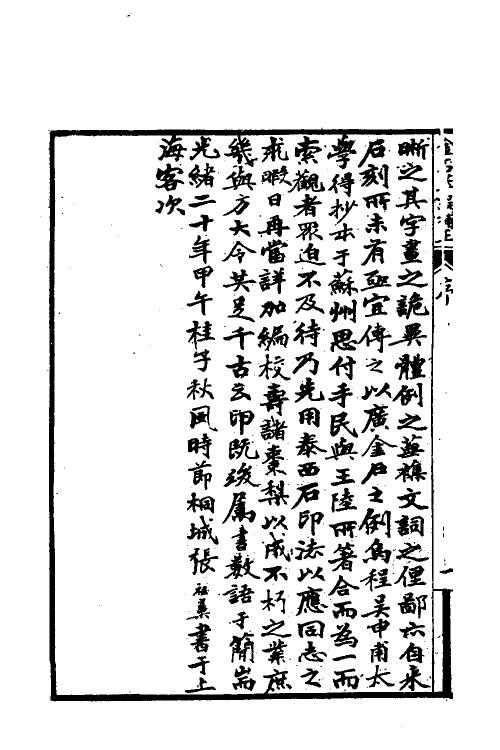 晰之其字畫之詭異體例之蕪襍文詞之俚鄙六自來
石刻所未有亟宜傳之以廣金石之例烏程吳申甫太
學得抄本于蘇州思付手民與王陸所著合而為一而
索觀者眾迫不及待乃先用泰西石印法以應同志之
求暇日再當詳加編校壽諸棗梨以成不朽之業庶
幾與方大令英是千古云印既竣屬書數語于簡耑
光緒二十年甲午桂子秋風時節桐城張祖翼書于上
海客次
序